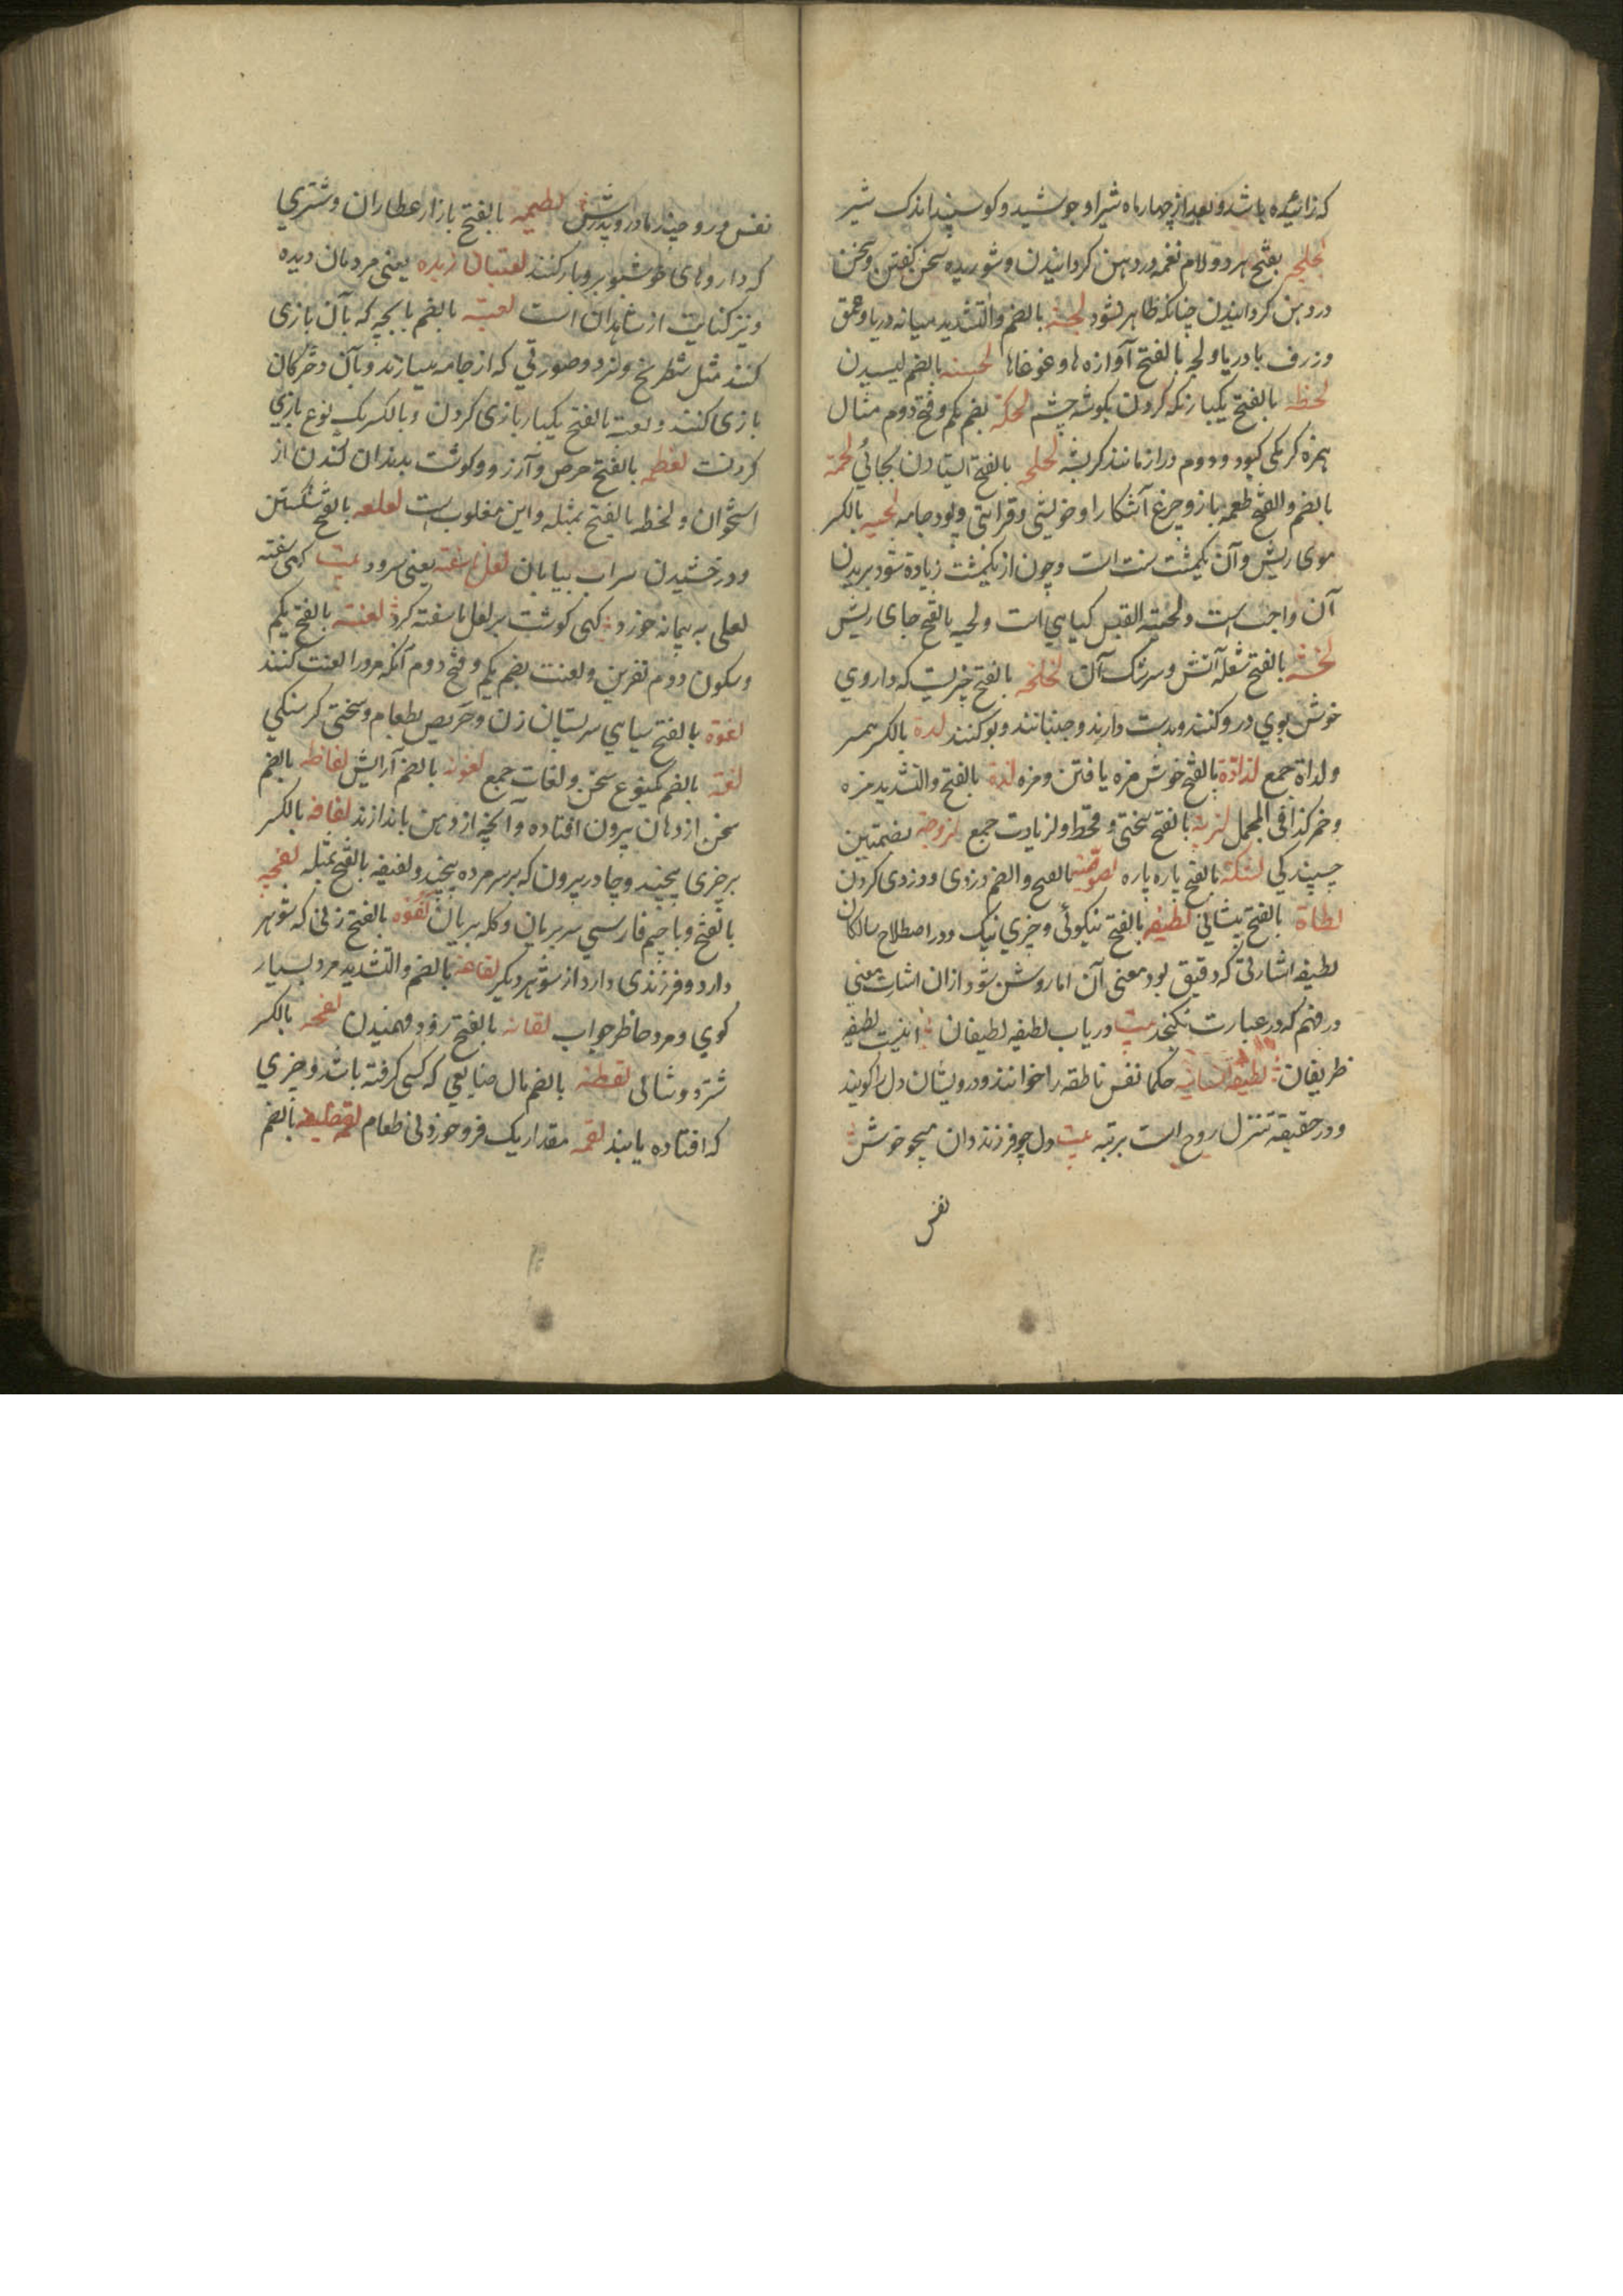 که زائیده باشد و بعد از چهار ماه شیر او جوشید و کوسپند اندک شیر
لجلجه بفتح هر دو لام لقمه در دهن کردانیدن و شوریده سخن کفتن و سخن
در دهن کردانیدن چنانکه ظاهر نشود لجة بالضم والتشدید میانه دریا و عمق
و ژرف با دریا و لجه بالفتح آوازه ها و غوغاها بالضم لیسیدن
لحظه بالفتح یکبار نکه کردن بکوشه چشم لحکة بضم یکم و فتح دوم مثال
همزه کرمکی کبود و دوم دراز مانند کربشه لحلحه بالفتح ایستادن بجائی لحمة
بالضم والفتح طعمه باز و چرغ آشکارا و خویشی و قرابتی و پود جامه لحیه بالکسر
موی ریش و آن یکمشت سنت است و چون از یکمشت زیاده شود بریدن
آن واجب است و لحیة القیس کیاهی است و لحیه بالفتح جای ریش
لخشه بالفتح شعله آتش و سرشک آن لخلخه بالفتح چیزیست که داروی
خوش بوی درو کنند و بدست دارند و جنبانند و بو کنند لدة بالکسر همسر
و لداة جمع لذاذة بالفتح خوش مزه یافتن و مزه لذة بالفتح والتشدید مزه
و خمر کذا فی المجمل لزبة بالفتح سختی و قحط و لزبات جمع لزوجة بضمتین
چسپندکی بالفتح پاره پاره لصوصیة بالفتح والضم دزدی و دزدی کردن
لطاة بالفتح پیشانی لطیفه بالفتح نیکوئی و چیزی نیک و در اصطلاح سالکان
لطیفه اشارتی که دقیق بود معنی آن اما روشن شود ازان اشارت معنی
در فهم که در عبارت نکنجد بیت دریاب لطیفه لطیفان اینست لطیفه
ظریفان لطیفه انسانیه حکما نفس ناطقه را خوانند و درویشان دل را کویند
و در حقیقة تنزل روح است برتبه بیت دل چو فرزند دان همچو خوش
نفس
نفس و روح چند مادر و پدرش لطیمه بالفتح بازار عطاران و شتری
که داروهای خوشبو برو بار کنند لعبتان دیده یعنی مردمان دیده
و نیز کنایت از شاهدان است لعبة بالضم بابچه که بآن بازی
کنند مثل شطرنج و نرد و صورتی که از جامه سازند و بآن دخترکان
بازی کنند و لعبة بالفتح یکبار بازی کردن و بالکسر یک نوع بازی
کردنت بالفتح حرص و آرزو و کوشت بدندان کندن از
استخوان و بالفتح بمثله و این مغلوب است لعلعه بالفتح شکستن
و درخشیدن سراب بیابان لعل سفته یعنی سرود بیت کهی سفته
لعلی به پیمانه خورد کهی کوشت بر لعل ناسفته کرد لعنة بالفتح یکم
و سکون دوم نفرین و لعنت بضم یکم و فتح دوم آنکه مرورا لعنت کنند
لعوة بالفتح سیاهی سر پستان زن و حریص بطعام و سختی کرسنکی
لغة بالضم یکنوع سخن و لغات جمع بالضم آرایش لفاظه بالضم
سخن از دهان بیرون افتاده و آنچه از دهن باندازند لفافه بالکسر
بر چیزی پیچند و چادر بیرون که بر سر مرده پیچید و لفیفه بالفتح بمثله لفچه
بالفتح و با جیم فارسی سر بریان و کله بریان بالفتح زنی که شوهر
دارد و فرزندی دارد از شوهر دیکر لقاعة بالضم والتشدید مرد بسیار
کوی و مرد حاظر جواب لقانه بالفتح زود فهمیدن لقحه بالکسر
شتر دوشائی لقطه بالضم مال ضایعی که کسی کرفته باشد و چیزی
که افتاده یابند لقمه مقدار یک فرو خوردنی طعام بالضم